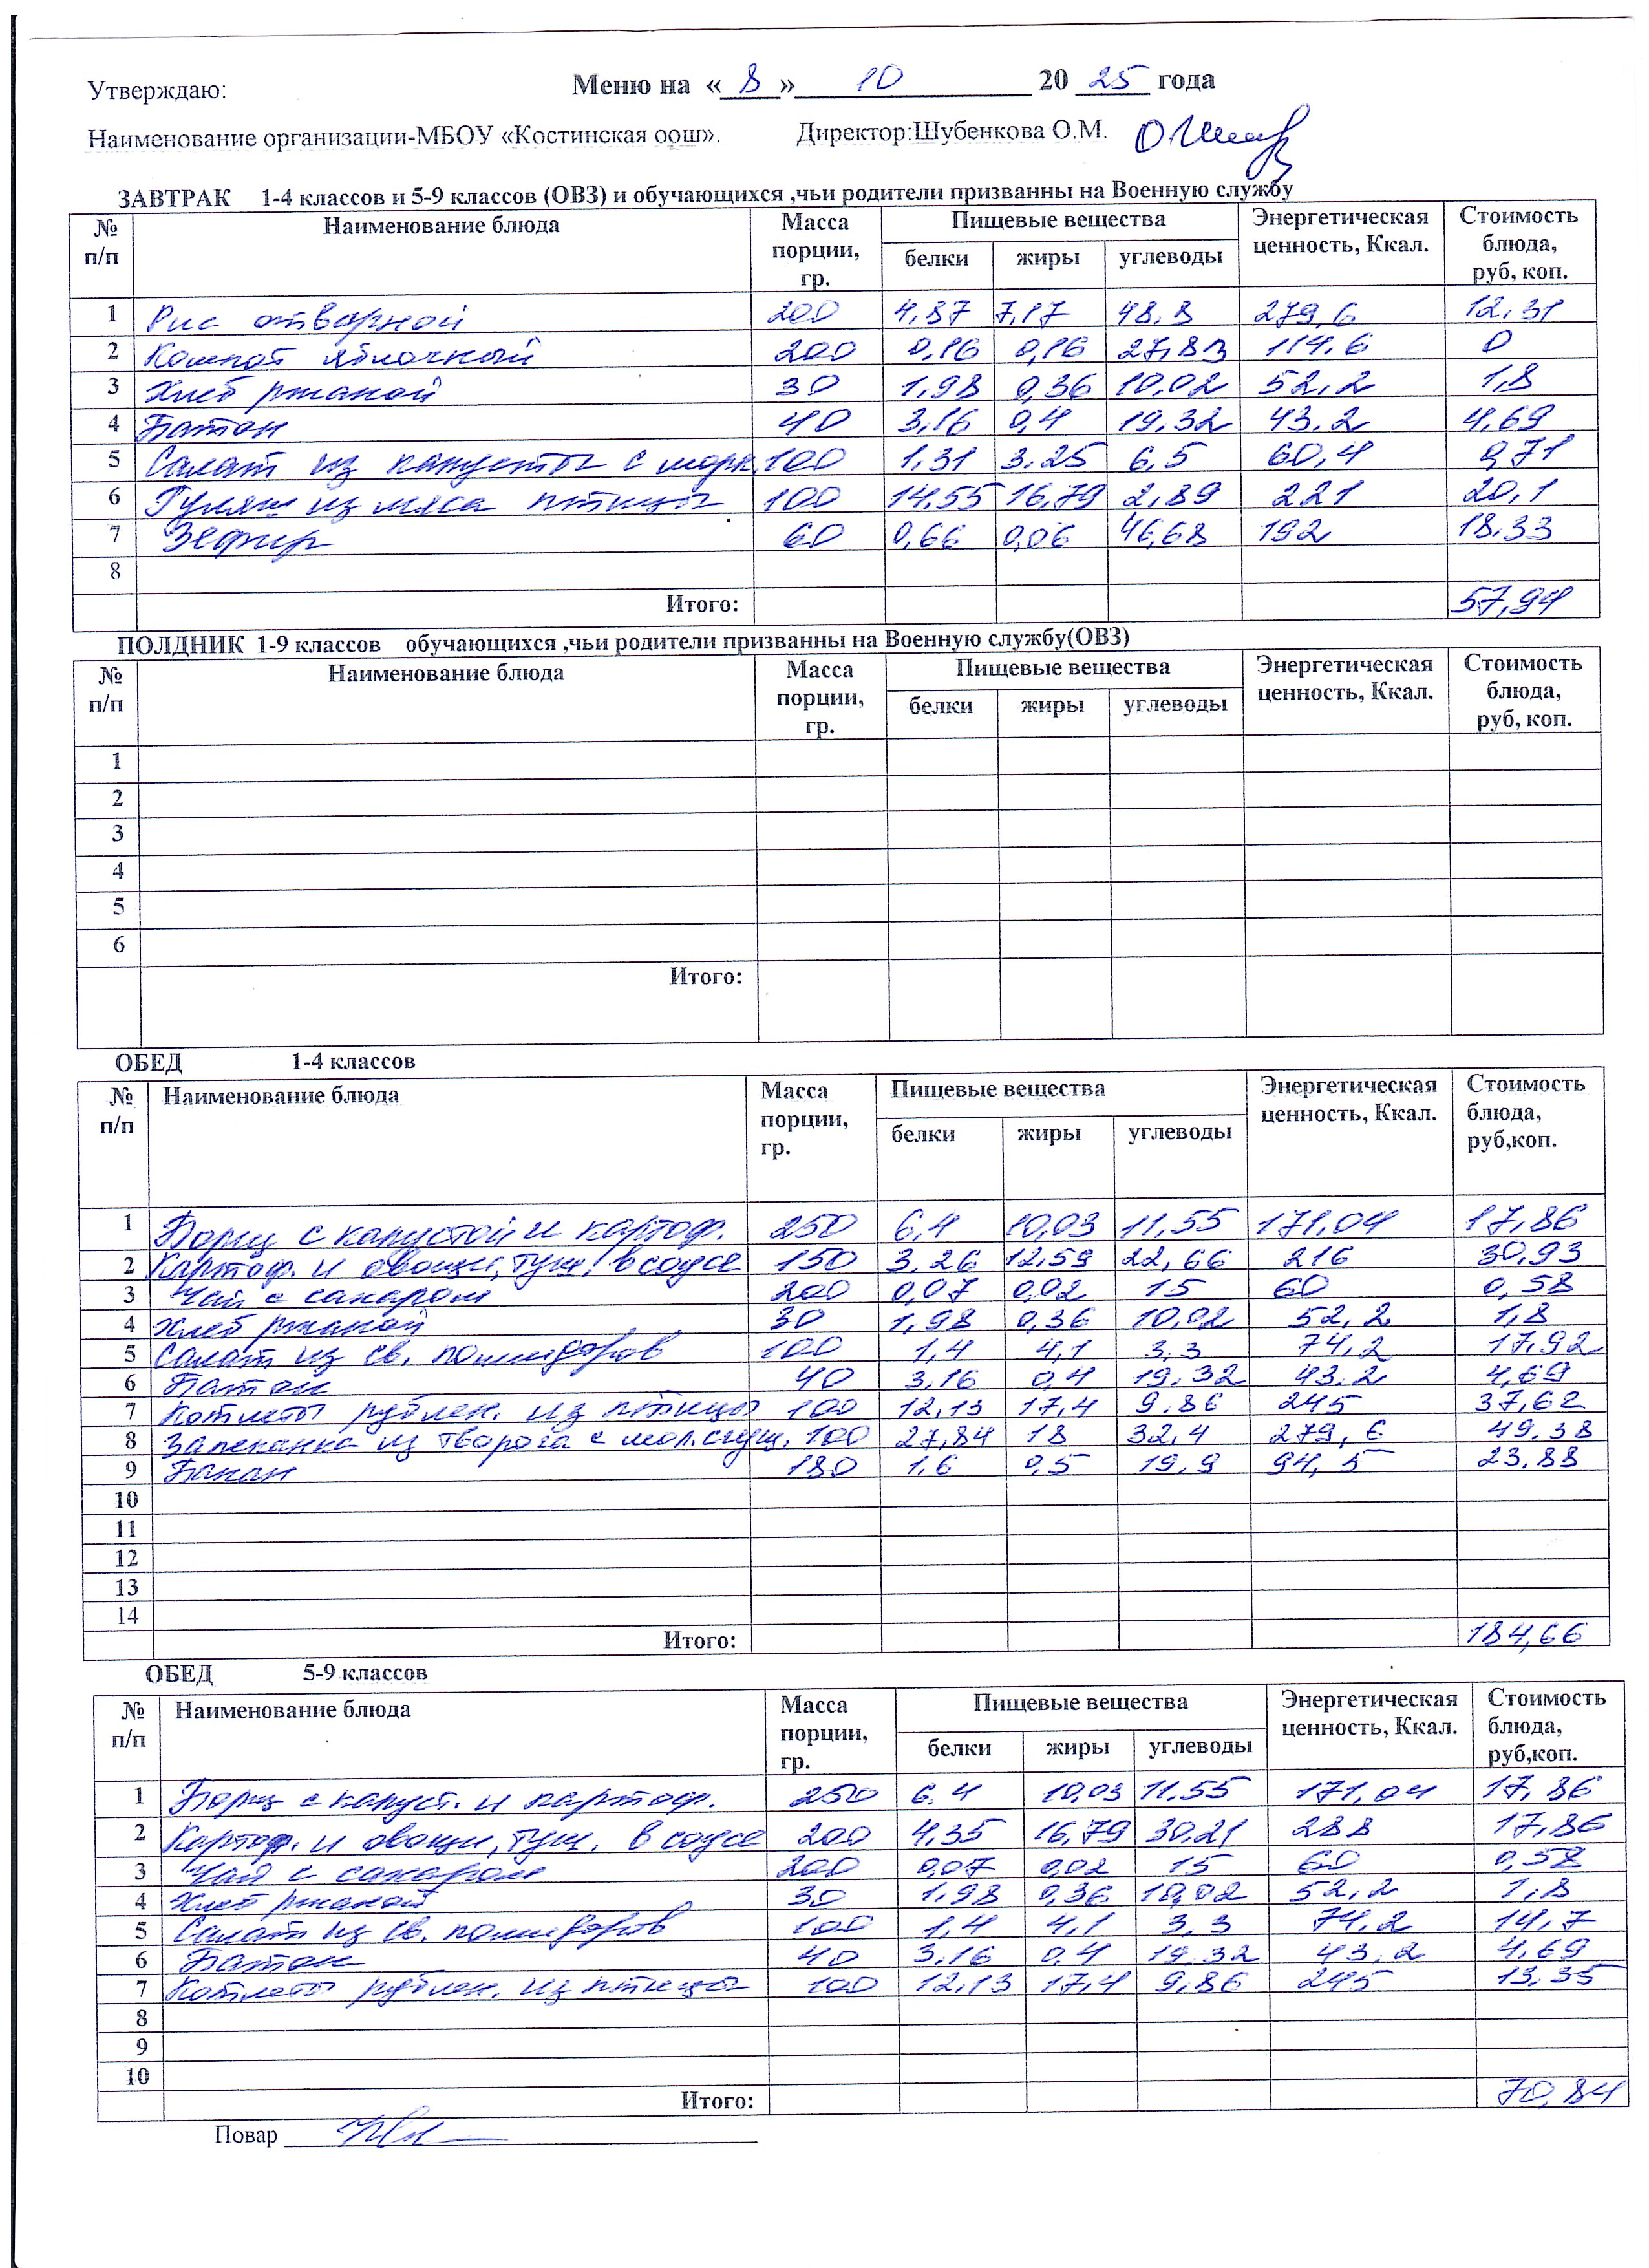 Утверждаю: Меню на «8» 10 20 25 года
Наименование организации-МБОУ «Костинская оош». Директор:Шубенкова О.М.
ЗАВТРАК 1-4 классов и 5-9 классов (ОВЗ) и обучающихся ,чьи родители призванны на Военную службу
№ п/п Наименование блюда Масса порции, гр. Пищевые вещества Энергетическая ценность, Ккал. Стоимость блюда, руб, коп.
белки жиры углеводы
1 Рис отварной 200 4,87 7,17 48,8 279,6 12,31
2 Компот яблочный 200 0,16 0,16 27,83 114,6 0
3 Хлеб ржаной 30 1,98 0,36 10,02 52,2 1,8
4 Батон 40 3,16 0,4 19,32 43,2 4,69
5 Салат из капусты с морк. 100 1,31 3,25 6,5 60,4 0,71
6 Гуляш из мяса птицы 100 14,55 16,79 2,89 221 20,1
7 Зефир 60 0,66 0,06 46,68 192 18,33
8
Итого: 57,94
ПОЛДНИК 1-9 классов обучающихся ,чьи родители призванны на Военную службу(ОВЗ)
№ п/п Наименование блюда Масса порции, гр. Пищевые вещества Энергетическая ценность, Ккал. Стоимость блюда, руб, коп.
белки жиры углеводы
1
2
3
4
5
6
Итого:
ОБЕД 1-4 классов
№ п/п Наименование блюда Масса порции, гр. Пищевые вещества Энергетическая ценность, Ккал. Стоимость блюда, руб,коп.
белки жиры углеводы
1 Борщ с капустой и картоф. 250 6,4 10,03 11,55 171,04 17,86
2 Картоф. и овощи, туш. в соусе 150 3,26 12,59 22,66 216 30,93
3 Чай с сахаром 200 0,07 0,02 15 60 0,58
4 Хлеб ржаной 30 1,98 0,36 10,02 52,2 1,8
5 Салат из св. помидоров 100 1,4 4,1 3,3 74,2 17,92
6 Батон 40 3,16 0,4 19,32 43,2 4,69
7 Котлеты рублен. из птицы 100 12,13 17,4 9,86 245 37,62
8 Запеканка из творога с мол.сгущ. 100 27,84 18 32,4 279,6 49,38
9 Банан 180 1,6 0,5 19,9 94,5 23,88
10
11
12
13
14
Итого: 184,66
ОБЕД 5-9 классов
№ п/п Наименование блюда Масса порции, гр. Пищевые вещества Энергетическая ценность, Ккал. Стоимость блюда, руб,коп.
белки жиры углеводы
1 Борщ с капуст. и картоф. 250 6,4 10,03 11,55 171,04 17,86
2 Картоф. и овощи, туш. в соусе 200 4,35 16,79 30,21 288 17,86
3 Чай с сахаром 200 0,07 0,02 15 60 0,58
4 Хлеб ржаной 30 1,98 0,36 10,02 52,2 1,8
5 Салат из св. помидоров 100 1,4 4,1 3,3 74,2 14,7
6 Батон 40 3,16 0,4 19,32 43,2 4,69
7 Котлеты рублен. из птицы 100 12,13 17,4 9,86 245 13,35
8
9
10
Итого: 70,84
Повар